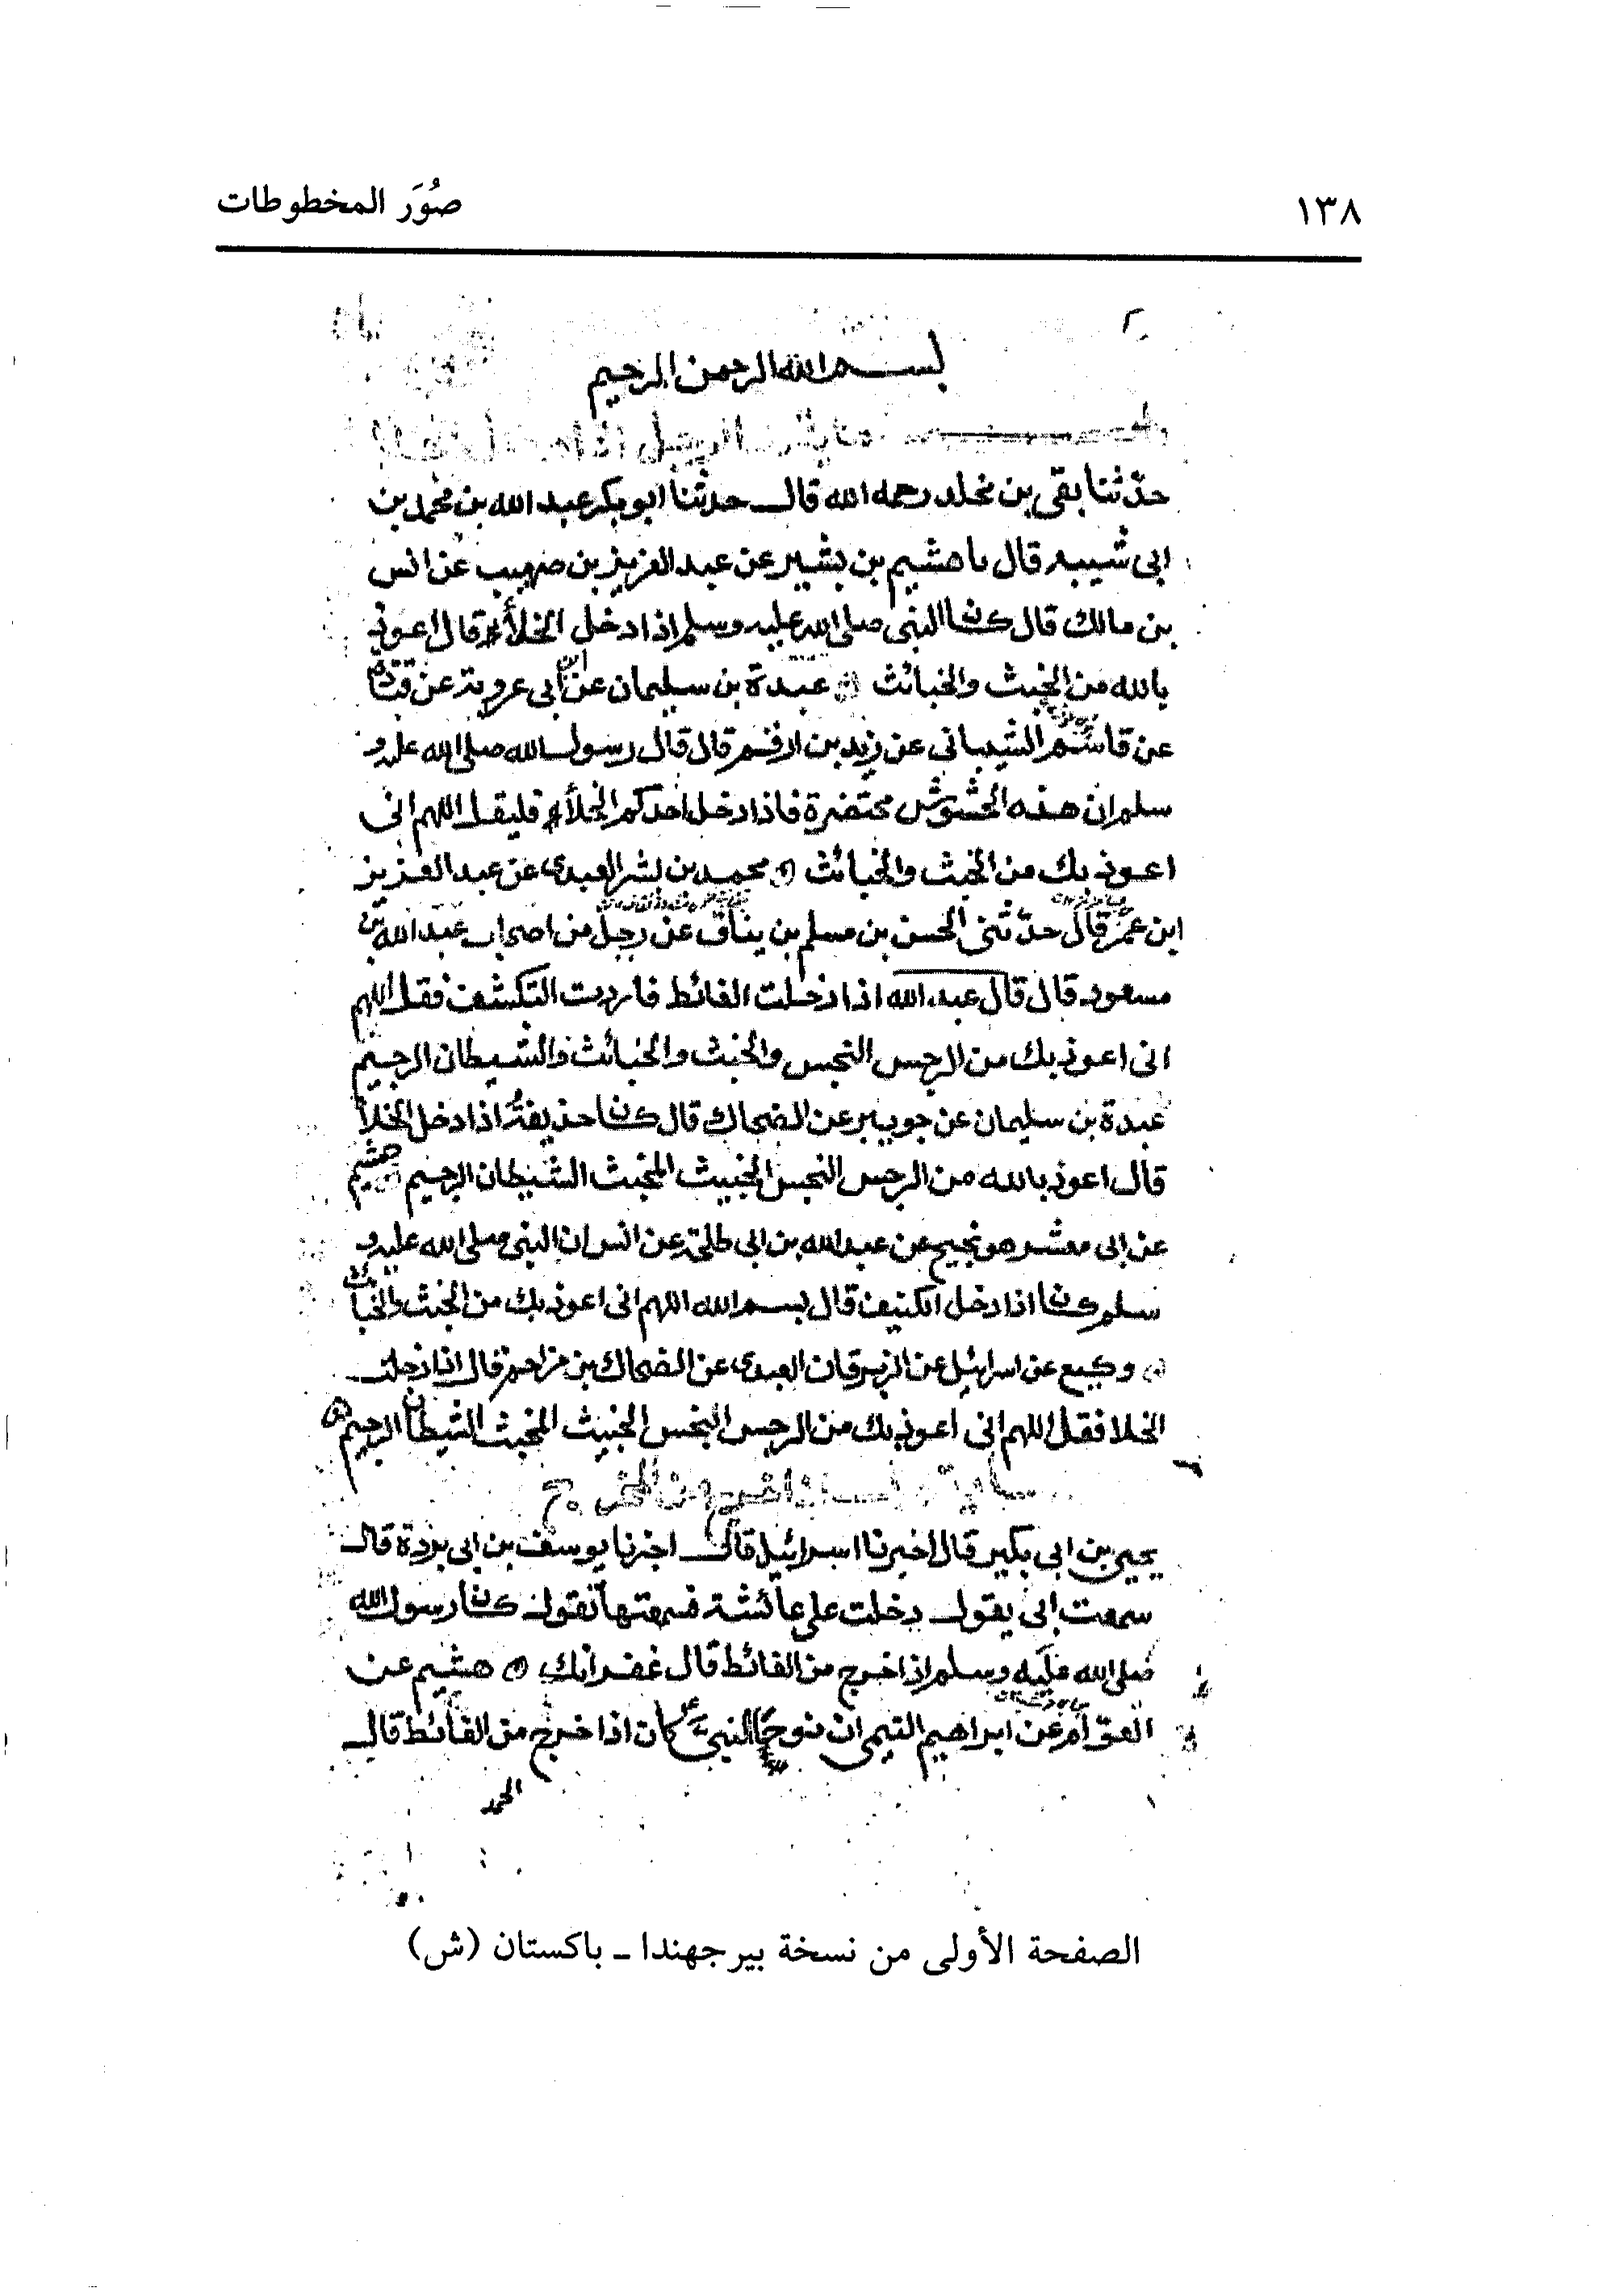 ١٣٨
صُوَر المخطوطات
بسم الله الرحمن الرحيم
ما يقول الرجل اذا دخل الخلاء
حدّثنا بقى بن مخلد رحمه الله قال حدثنا ابو بكر عبد الله بن محمد بن
ابى شيبه قال نا هشيم بن بشير عن عبد العزيز بن صهيب عن انس
بن مالك قال كان النبى صلى الله عليه وسلم اذا دخل الخلأ قال اعوذ
بالله من الخبث والخبائث عبدة بن سليمان عن ابن ابى عروبة عن قتادة
عن قاسم الشيبانى عن زيد بن ارقم قال قال رسول الله صلى الله عليه و
سلم ان هذه الحشوش محتضرة فاذا دخل احدكم الخلأ فليقل اللهم انى
اعوذ بك من الخبث والخبائث محمد بن بشر العبدى عن عبد العزيز
ابن عمر قال حدّثنى الحسن بن مسلم بن يناق عن رجل من اصحاب عبد الله بن
مسعود قال قال عبد الله اذا دخلت الغائط فاردت التكشف فقل اللهم
انى اعوذ بك من الرجس النجس والخبث والخبائث والشيطان الرجيم
عبدة بن سليمان عن جويبر عن الضحاك قال كان حذيفة اذا دخل الخلأ
قال اعوذ بالله من الرجس النجس الخبيث المخبث الشيطان الرجيم هشيم
عن ابى معشر هو نجيح عن عبد الله بن ابى طلحة عن انس ان النبى صلى الله عليه و
سلم كان اذا دخل الكنيف قال بسم الله اللهم انى اعوذ بك من الخبث والخبائث
وكيع عن اسرائيل عن الزبرقان العبدى عن الضحاك بن مزاحم قال اذا دخلت
الخلا فقل اللهم انى اعوذ بك من الرجس النجس الخبيث المخبث الشيطان الرجيم
ما يقول اذا خرج من المخرج
يحيى بن ابى بكير قال اخبرنا اسرائيل قال اخبرنا يوسف بن ابى بردة قال
سمعت ابى يقول دخلت على عائشة فسمعتها تقول كان رسول الله
صلى الله عليه وسلم اذا خرج من الغائط قال غفرانك هشيم عن
العوّام عن ابراهيم التيمى ان نوحا النبىّ كان اذا خرج من الغائط قال
الحمد
الصفحة الأولى من نسخة بيرجهندا ـ باكستان (ش)